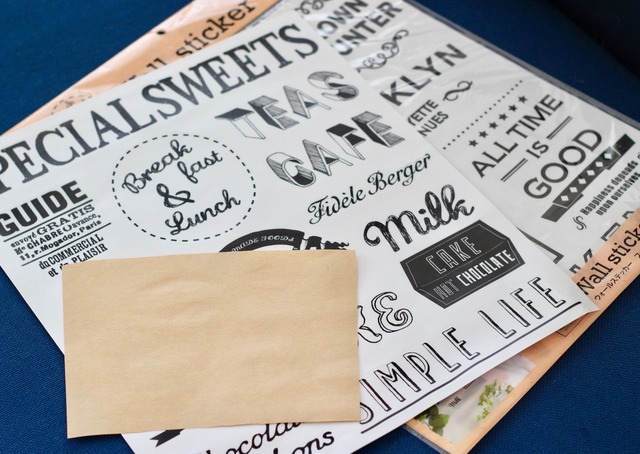 wall sticker
PECIAL SWEETS
TEAS
CAFE
Break
fast
&
Lunch
GUIDE
envoyé GRATIS
Mo CHABRE
11, r. Mogador, Paris
du COMMERCIAL
et du PLAISIR
Fidèle Berger
Milk
CAKE
HOT CHOCOLATE
KE
SIMPLE LIFE
OWN
UNTER
KLYN
ETTE
NUES
ALL TIME
IS
GOOD
Happiness depends
upon ourselves
Wall stick
ウォールステッカー